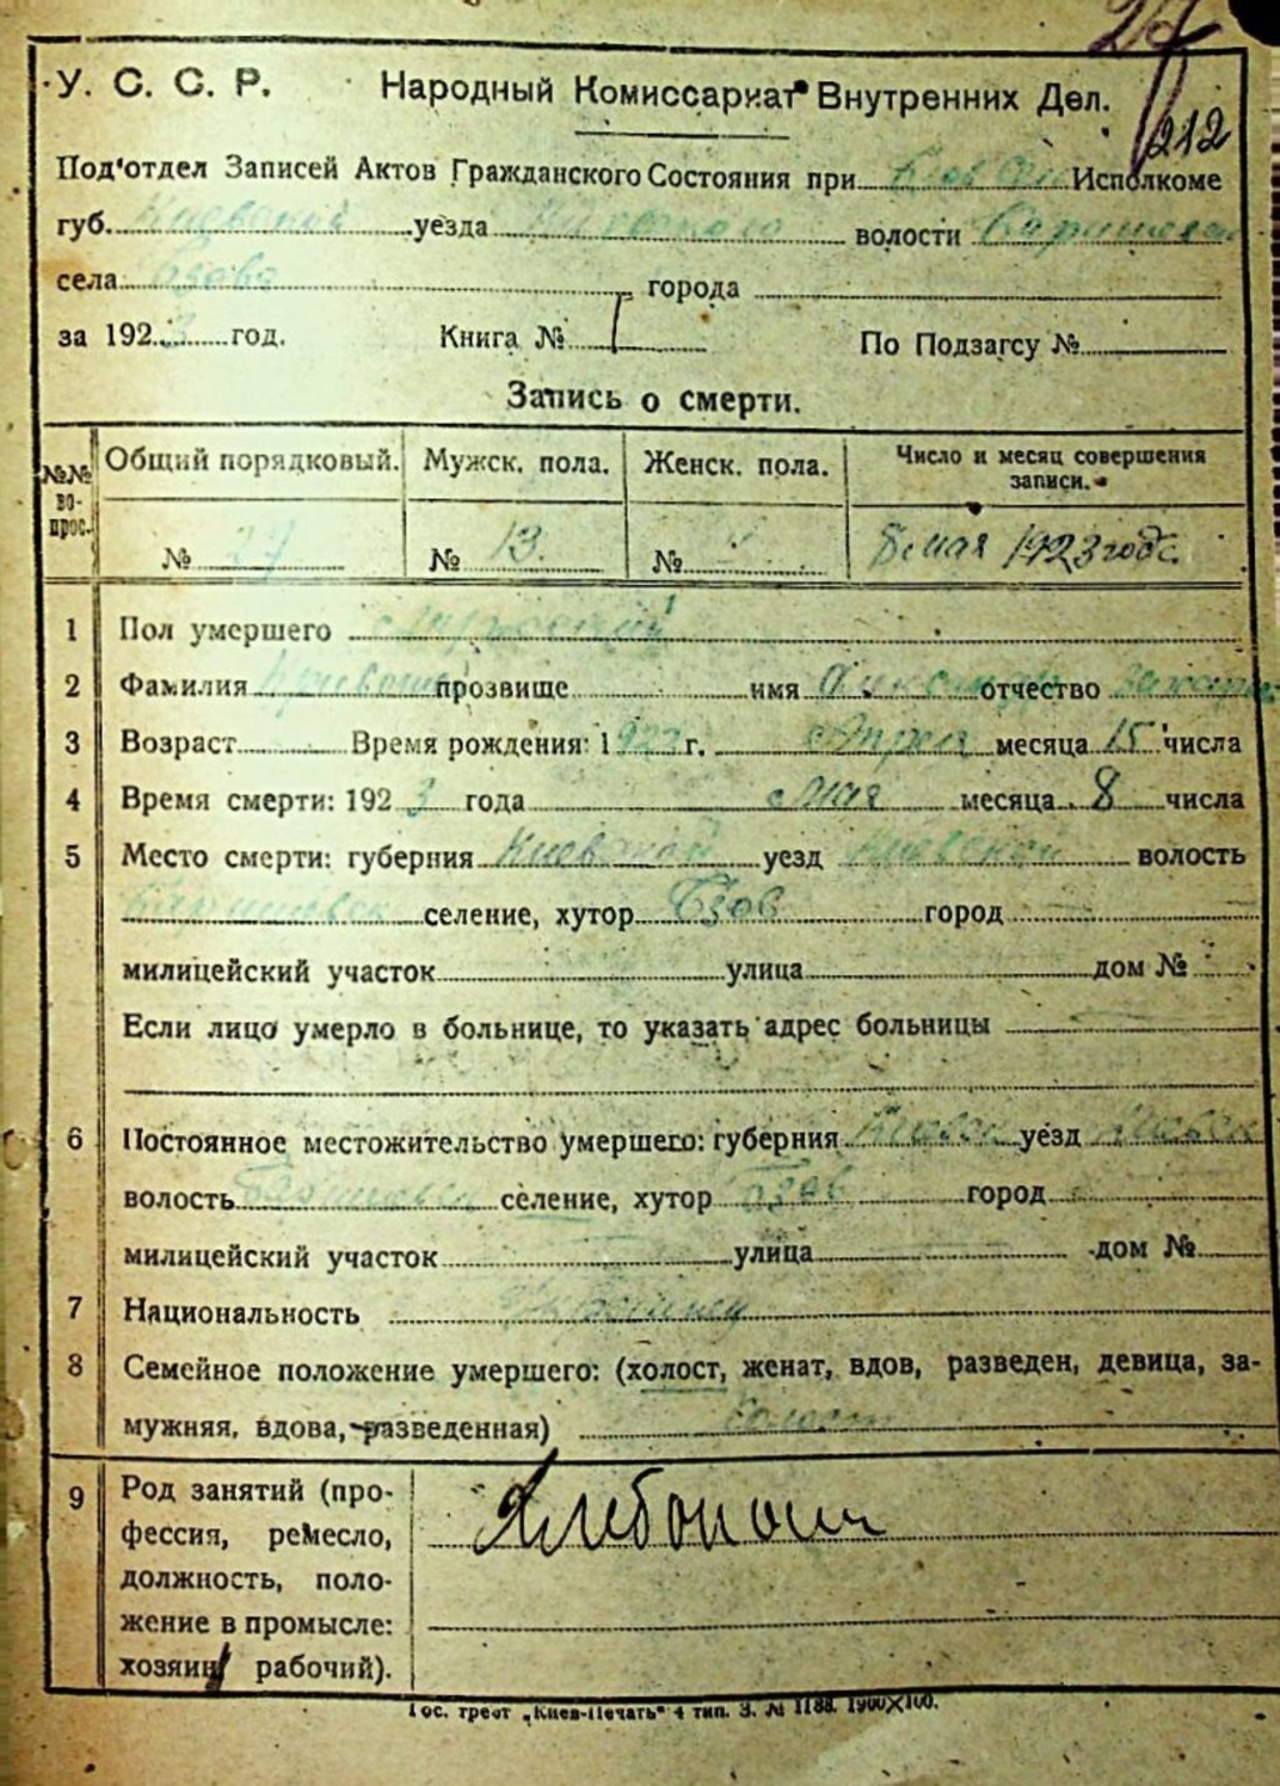 27
212
У. С. С. Р. Народный Комиссариат Внутренних Дел.
Под'отдел Записей Актов Гражданского Состояния при Исполкоме
губ. Киевской уезда Киевского волости
села города
за 1923 год. Книга № По Подзагсу №
Запись о смерти.
№№ во-прос. Общий порядковый. Мужск. пола. Женск. пола. Число и месяц совершения записи.
№ 27 № 13. № 8 мая 1923 годс.
1 Пол умершего Мужский
2 Фамилия прозвище имя Александр отчество
3 Возраст Время рождения: 1922 г. Апреля месяца 15 числа
4 Время смерти: 1923 года Мая месяца 8 числа
5 Место смерти: губерния Киевской уезд Киевской волость
селение, хутор Бзов город
милицейский участок улица дом №
Если лицо умерло в больнице, то указать адрес больницы
6 Постоянное местожительство умершего: губерния Киевск уезд Киевск
волость селение, хутор Бзов город
милицейский участок улица дом №
7 Национальность Украинец
8 Семейное положение умершего: (холост, женат, вдов, разведен, девица, за-
мужняя, вдова, разведенная) холост
9 Род занятий (про-
фессия, ремесло,
должность, поло-
жение в промысле:
хозяин, рабочий).
Хлебопаш
Гос. трест „Киев-Печать" 4 тип. З. № 1188. 1900×100.